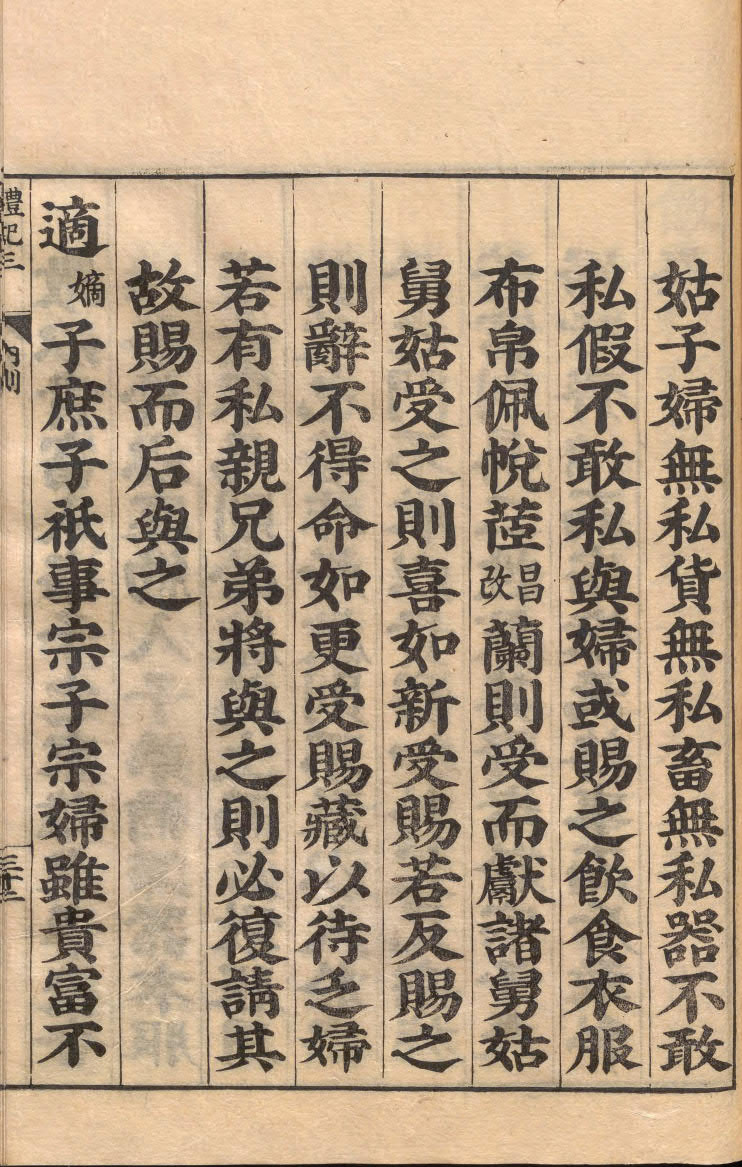 姑子婦無私貨無私畜無私器不敢
私假不敢私與婦或賜之飲食衣服
布帛佩帨茝昌改蘭則受而獻諸舅姑
舅姑受之則喜如新受賜若反賜之
則辭不得命如更受賜藏以待乏婦
若有私親兄弟將與之則必復請其
故賜而后與之
適嫡子庶子祇事宗子宗婦雖貴富不
禮記三 內則